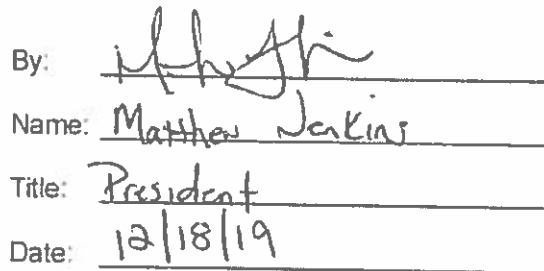 By:
Name: Matthew Jenkins
Title: President
Date: 12/18/19